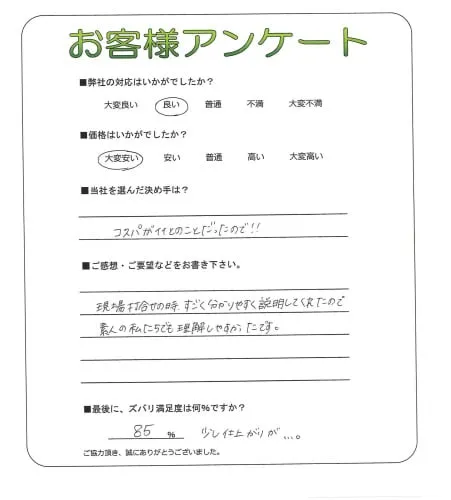 お客様アンケート
■弊社の対応はいかがでしたか？
大変良い 良い 普通 不満 大変不満
■価格はいかがでしたか？
大変安い 安い 普通 高い 大変高い
■当社を選んだ決め手は？
コスパがイイとのことだったので!!
■ご感想・ご要望などをお書き下さい。
現場打合せの時、すごく分かりやすく説明してくれたので
素人の私たちでも理解しやすかったです。
■最後に、ズバリ満足度は何%ですか？
85 % 少し仕上がりが...。
ご協力頂き、誠にありがとうございました。